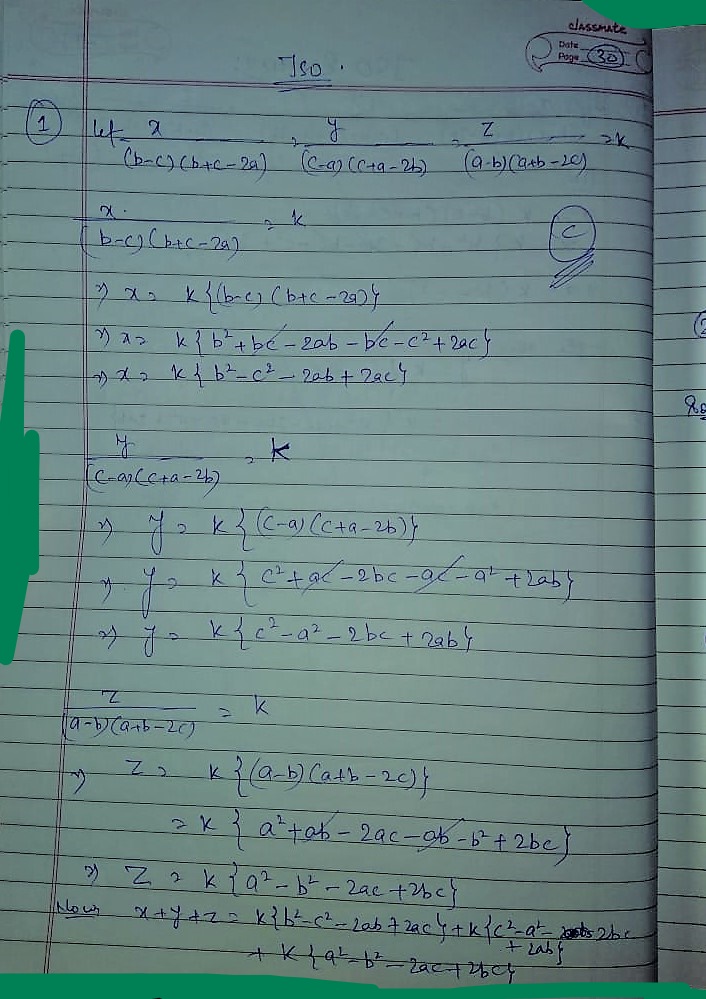 classmate
Date
Page 30
Iso.
1 let x/((b-c)(b+c-2a)) = y/((c-a)(c+a-2b)) = z/((a-b)(a+b-2c)) = k
x/((b-c)(b+c-2a)) = k
C
⇒ x = k{(b-c)(b+c-2a)}
⇒ x = k{b²+bc-2ab-bc-c²+2ac}
⇒ x = k{b²-c²-2ab+2ac}
y/((c-a)(c+a-2b)) = k
⇒ y = k{(c-a)(c+a-2b)}
⇒ y = k{c²+ac-2bc-ac-a²+2ab}
⇒ y = k{c²-a²-2bc+2ab}
z/((a-b)(a+b-2c)) = k
⇒ z = k{(a-b)(a+b-2c)}
= k{a²+ab-2ac-ab-b²+2bc}
⇒ z = k{a²-b²-2ac+2bc}
Now x+y+z = k{b²-c²-2ab+2ac}+k{c²-a²-2bc
+2ab}
+ k{a²-b²-2ac+2bc}